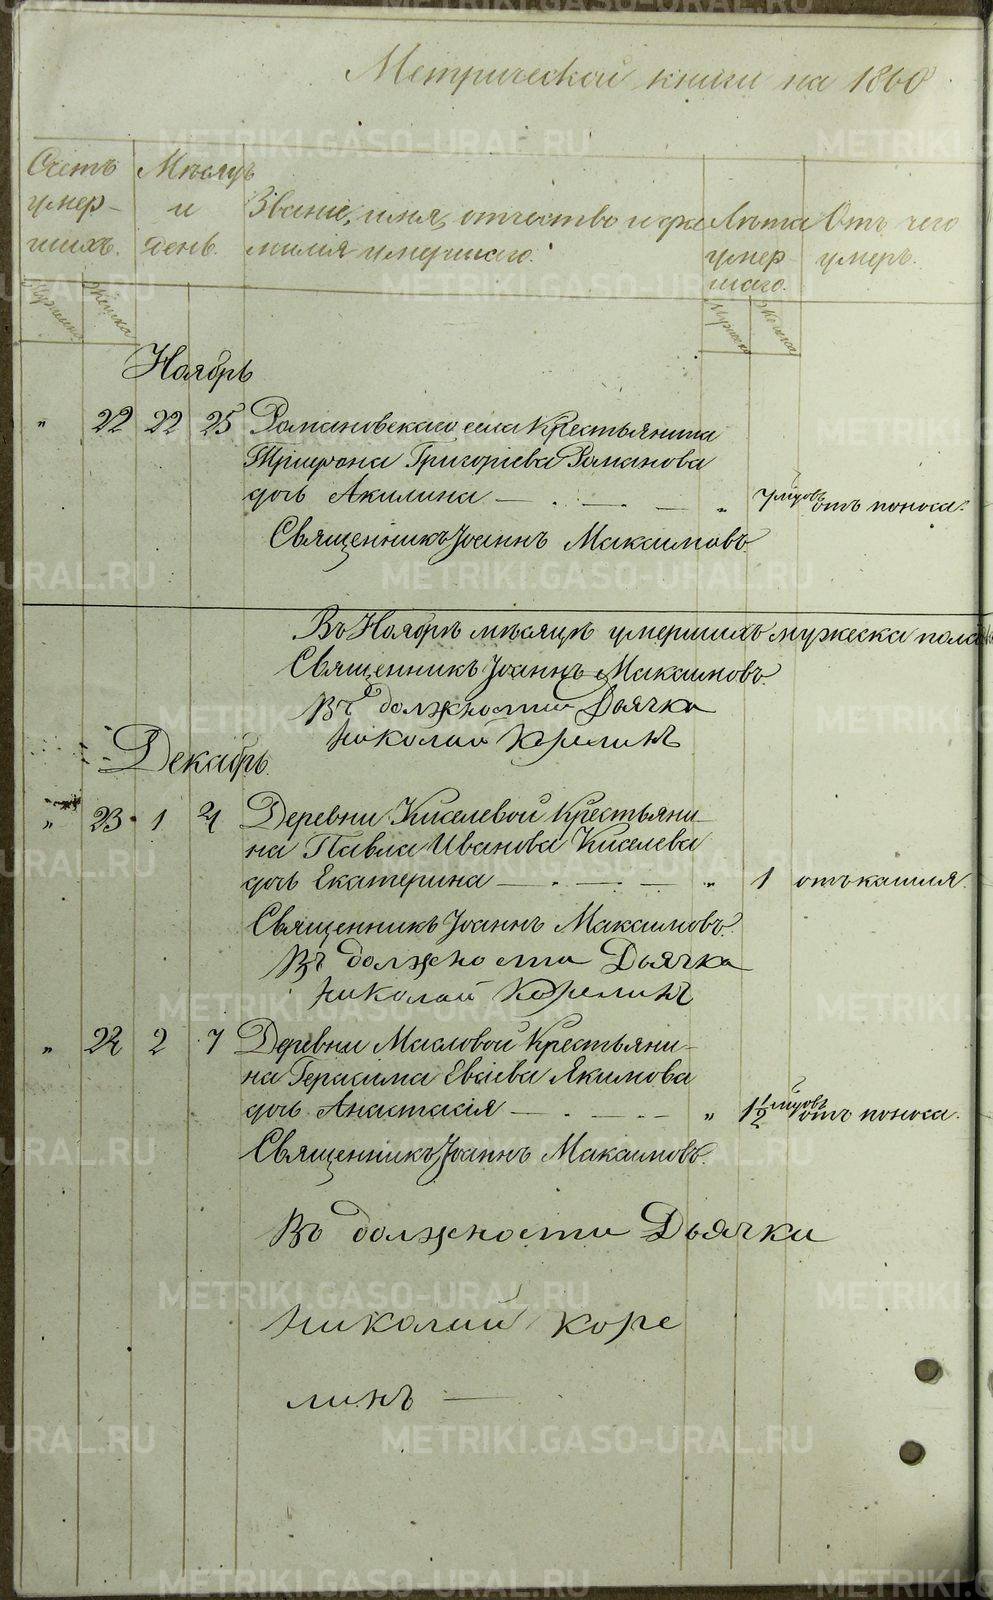 Метрической книги на 1860
Счетъ умер- шихъ.
Мѣсяцъ и день.
Званіе, имя, отчество и фа- милія умершаго.
Лѣта умер- шаго.
Отъ чего умеръ.
Мужеска Женска
Мужеска Женска
Ноябрь
" 22 22 25 Романовскаго села Крестьянина
Трифона Григорьева Романова
дочь Акилина — . — — " 7 мѣцовъ отъ поноса.
Священникъ Іоаннъ Максимовъ
Въ Ноябрѣ мѣсяцѣ умершихъ мужеска пола
Священникъ Іоаннъ Максимовъ
Въ должности Дьячка
Николай Корелинъ
Декабрь.
" 23 1 4 Деревни Киселевой Крестьяни-
на Павла Иванова Киселева
дочь Екатерина — . — — " 1 отъ кашля.
Священникъ Іоаннъ Максимовъ.
Въ должности Дьячка
Николай Корелинъ
" 24 2 7 Деревни Масловой Крестьяни-
на Герасима Якимова
дочь Анастасія — . — — " 1½ мѣцовъ отъ поноса.
Священникъ Іоаннъ Максимовъ.
Въ должности Дьячка
Николай Коре
линъ —
METRIKI.GASO-URAL.RU